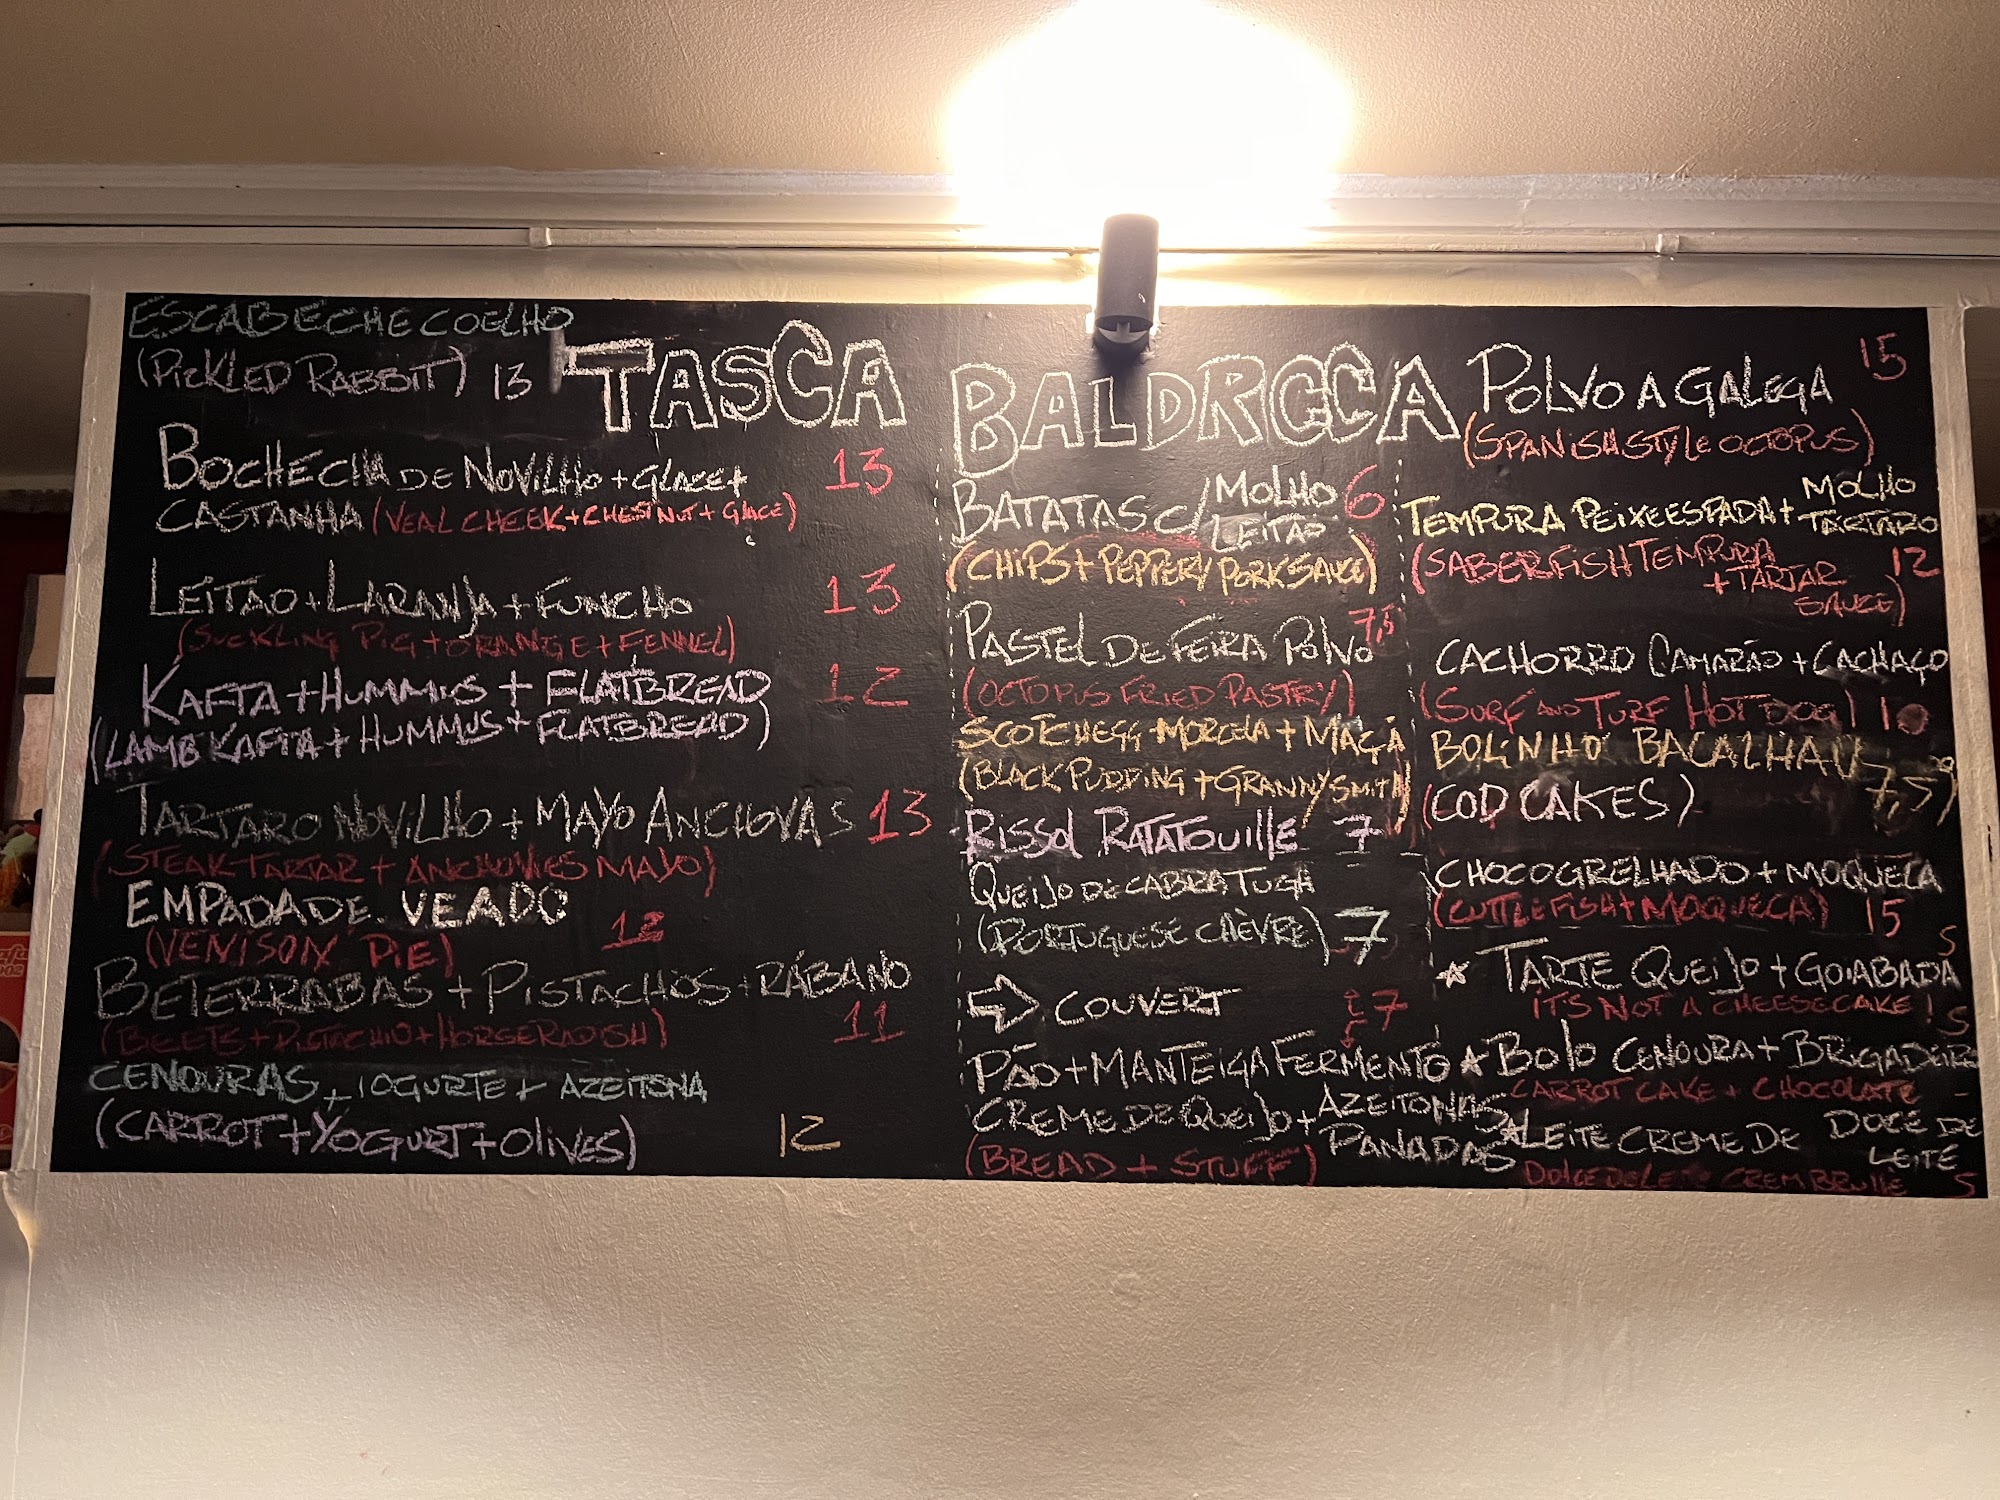 ESCABECHE COELHO
(PICKLED RABBIT) 13
TASCA BALDRACCA
BOCHECHA DE NOVILHO + GLACE + 13
CASTANHA (VEAL CHEEK + CHESTNUT + GLACE)
LEITÃO + LARANJA + FUNCHO 13
(SUCKLING PIG + ORANGE + FENNEL)
KAFTA + HUMMUS + FLATBREAD 12
(LAMB KAFTA + HUMMUS + FLATBREAD)
TARTARO NOVILHO + MAYO ANCHOVAS 13
(STEAK TARTAR + ANCHOVIES MAYO)
EMPADA DE VEADO
(VENISON PIE) 12
BETERRABAS + PISTACHOS + RÁBANO
(BEETS + PISTACHIO + HORSERADISH) 11
CENOURAS + IOGURTE + AZEITONA
(CARROT + YOGURT + OLIVES) 12
BATATAS C/ MOLHO 6
LEITÃO
(CHIPS + PEPPERY PORK SAUCE)
PASTEL DE FEIRA POLVO 7,5
(OCTOPUS FRIED PASTRY)
SCOTCHEGG + MORCELA + MAÇÃ
(BLACK PUDDING + GRANNY SMITH)
RISSOL RATATOUILLE 7
QUEIJO DE CABRA TUGA
(PORTUGUESE CHÈVRE) 7
COUVERT 7
PÃO + MANTEIGA FERMENTO
CREME DE QUEIJO + AZEITONAS
PANADAS
(BREAD + STUFF)
POLVO A GALEGA 15
(SPANISH STYLE OCTOPUS)
TEMPURA PEIXE ESPADA + MOLHO
TÁRTARO
(SABERFISH TEMPURA 12
+ TARTAR
SAUCE)
CACHORRO CAMARÃO + CACHAÇO
(SURF AND TURF HOT DOG) 10
BOLINHO BACALHAU 7,5
(COD CAKES)
CHOCO GRELHADO + MOQUECA
(CUTTLEFISH + MOQUECA) 15
★ TARTE QUEIJO + GOIABADA 5
IT'S NOT A CHEESECAKE!
★ BOLO CENOURA + BRIGADEIRO 5
CARROT CAKE + CHOCOLATE
★ LEITE CREME DE DOCE DE
LEITE
DOLCE DE LE CREM BRULLE 5